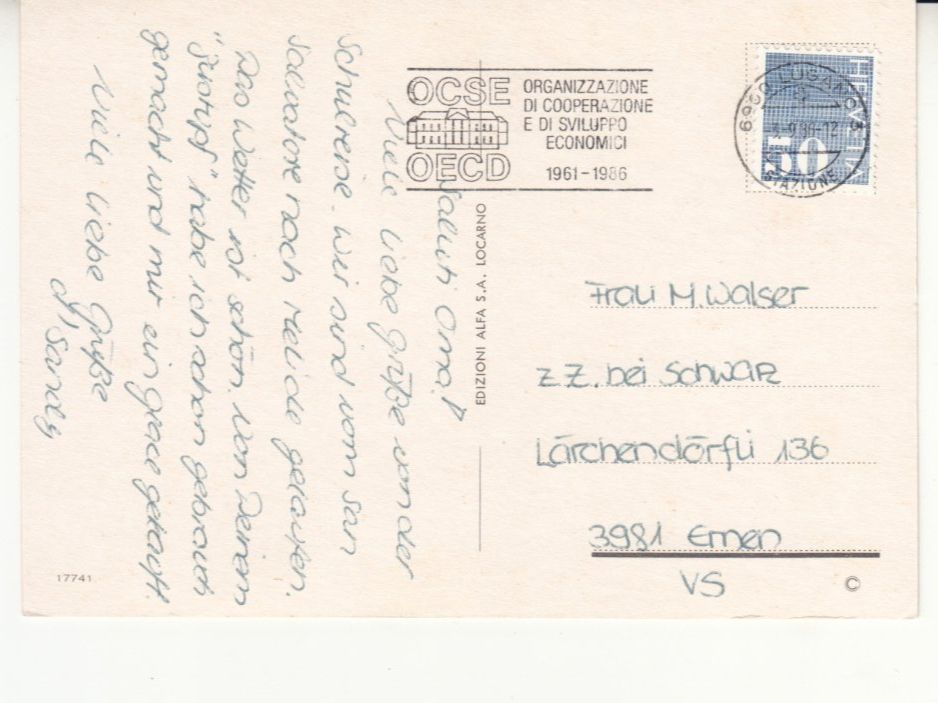 Saluti Oma!
Viele liebe Grüße von der
Schulreise. Wir sind vom San
Salvatore nach Melide gelaufen.
Das Wetter ist schön. Von Deinem
habe ich schon gebrauch
gemacht und mir ein gekauft.
Viele liebe Grüße
Sandy
OCSE
OECD
ORGANIZZAZIONE
DI COOPERAZIONE
E DI SVILUPPO
ECONOMICI
1961-1986
HELVETIA
50
STAZIONE
EDIZIONI ALFA S.A. LOCARNO
Frau M. Walser
z.Z. bei Schwarz
Lärchendörfli 136
3981 Ernen
VS
17741
©